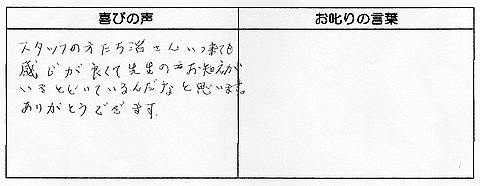 喜びの声
お叱りの言葉
スタッフの方たち皆さんいつ来ても
感じが良くて先生のお知えが
いきとどいているんだなと思います。
ありがとうございます。